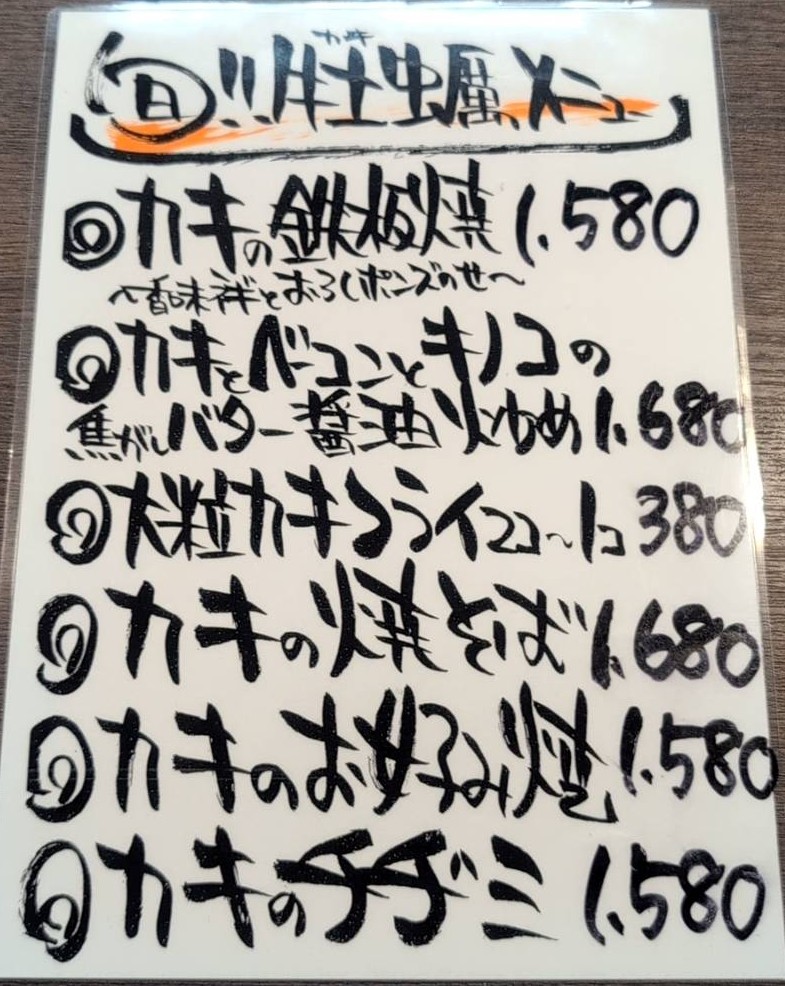 旬!!!牡蠣メニュー
カキ
カキの鉄板焼 1.580
〜香味ネギとおろしポンズのせ〜
カキとベーコンとキノコの
焦がしバター醤油炒め 1.680
大粒カキフライ2コ〜1コ 380
カキの焼そば 1.680
カキのお好み焼 1.580
カキのチヂミ 1.580